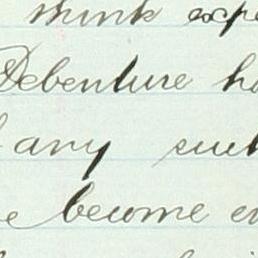 think expe
Debenture ha
any such
become en